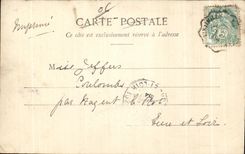 CARTE POSTALE
Ce côté est exclusivement réservé à l'adresse
Imprimé
Coulombs
par Nogent le Roi
Eure et Loir